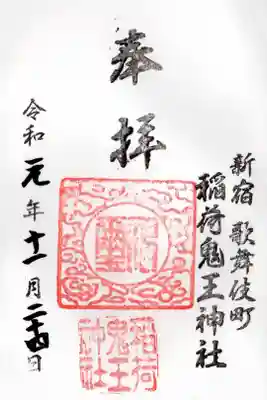 奉拝
新宿 歌舞伎町
稲荷鬼王神社
稲荷
鬼王
神社
令和元年十一月二十四日